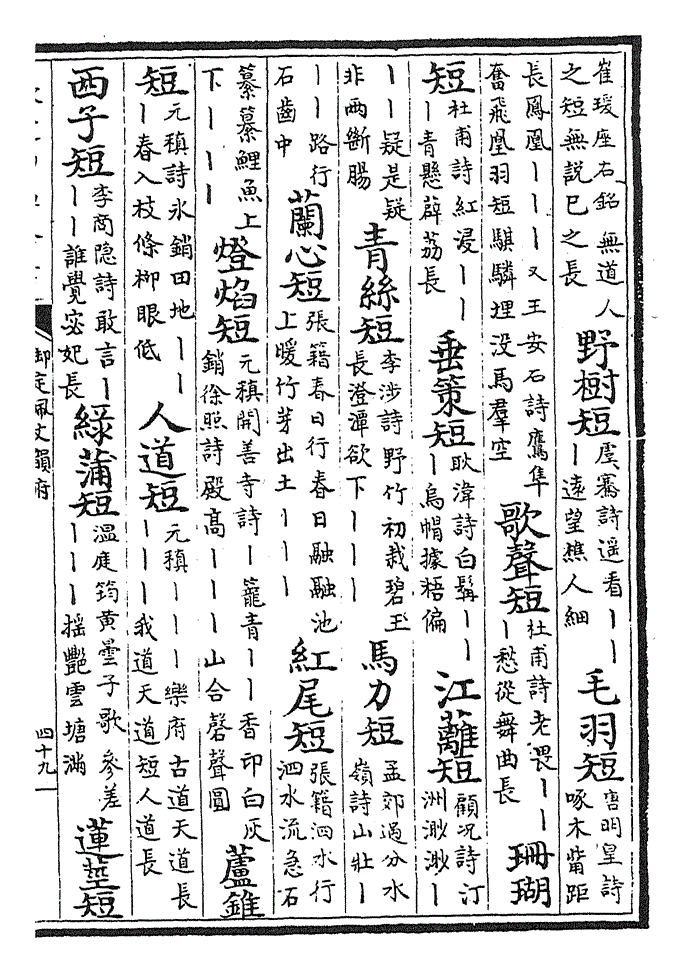 崔瑗座右銘無道人
之短無說已之長
野樹短
虞騫詩遥看丨丨
丨遠望樵人細
毛羽短
唐明皇詩
啄木觜距
長鳳凰丨丨丨又王安石詩鷹隼
奮飛凰羽短騏驎埋没馬羣空
歌聲短
杜甫詩老畏丨丨
丨愁從舞曲長
珊瑚
短
杜甫詩紅浸丨丨
丨青懸薜荔長
垂策短
耿湋詩白髯丨丨
丨烏帽據梧偏
江蘺短
顧况詩汀
洲渺渺丨
丨丨疑是疑
非兩斷腸
青絲短
李涉詩野竹初栽碧玉
長澄潭欲下丨丨丨
馬力短
孟郊過分水
嶺詩山壯丨
丨丨路行
石齒中
蘭心短
張籍春日行春日融融池
上暖竹芽出土丨丨丨
紅尾短
張籍泗水行
泗水流急石
纂纂鯉魚上
下丨丨丨
燈焰短
元稹開善寺詩丨籠青丨丨香印白灰
銷徐照詩殿高丨丨丨山合磬聲圓
蘆錐
短
元稹詩氷銷田地丨丨
丨春入枝條柳眼低
人道短
元稹丨丨丨樂府古道天道長
丨丨丨我道天道短人道長
西子短
李商隐詩敢言丨
丨丨誰覺宓妃長
緑蒲短
温庭筠黄曇子歌參差
丨丨丨摇艷雲塘滿
蓮莖短
御定佩文韻府
四十九